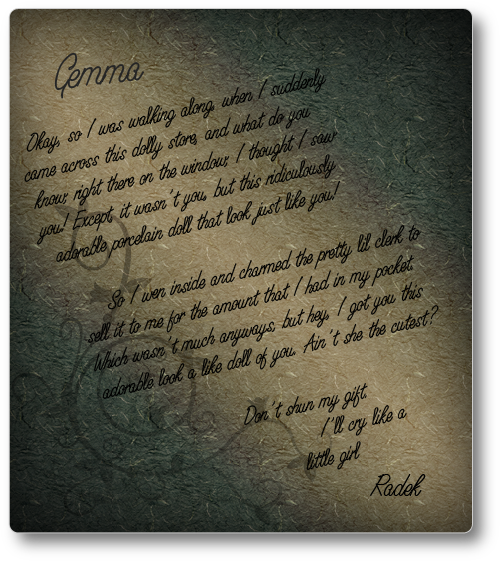 Gemma
Okay, so I was walking along, when I suddenly
came across this dolly store, and what do you
know, right there on the window, I thought I saw
you! Except it wasn't you, but this ridiculously
adorable porcelain doll that look just like you!
So I wen inside and charmed the pretty lil clerk to
sell it to me for the amount that I had in my pocket.
Which wasn't much anyways, but hey, I got you this
adorable look a like doll of you. Ain't she the cutest?
Don't shun my gift.
I'll cry like a
little girl
Radek